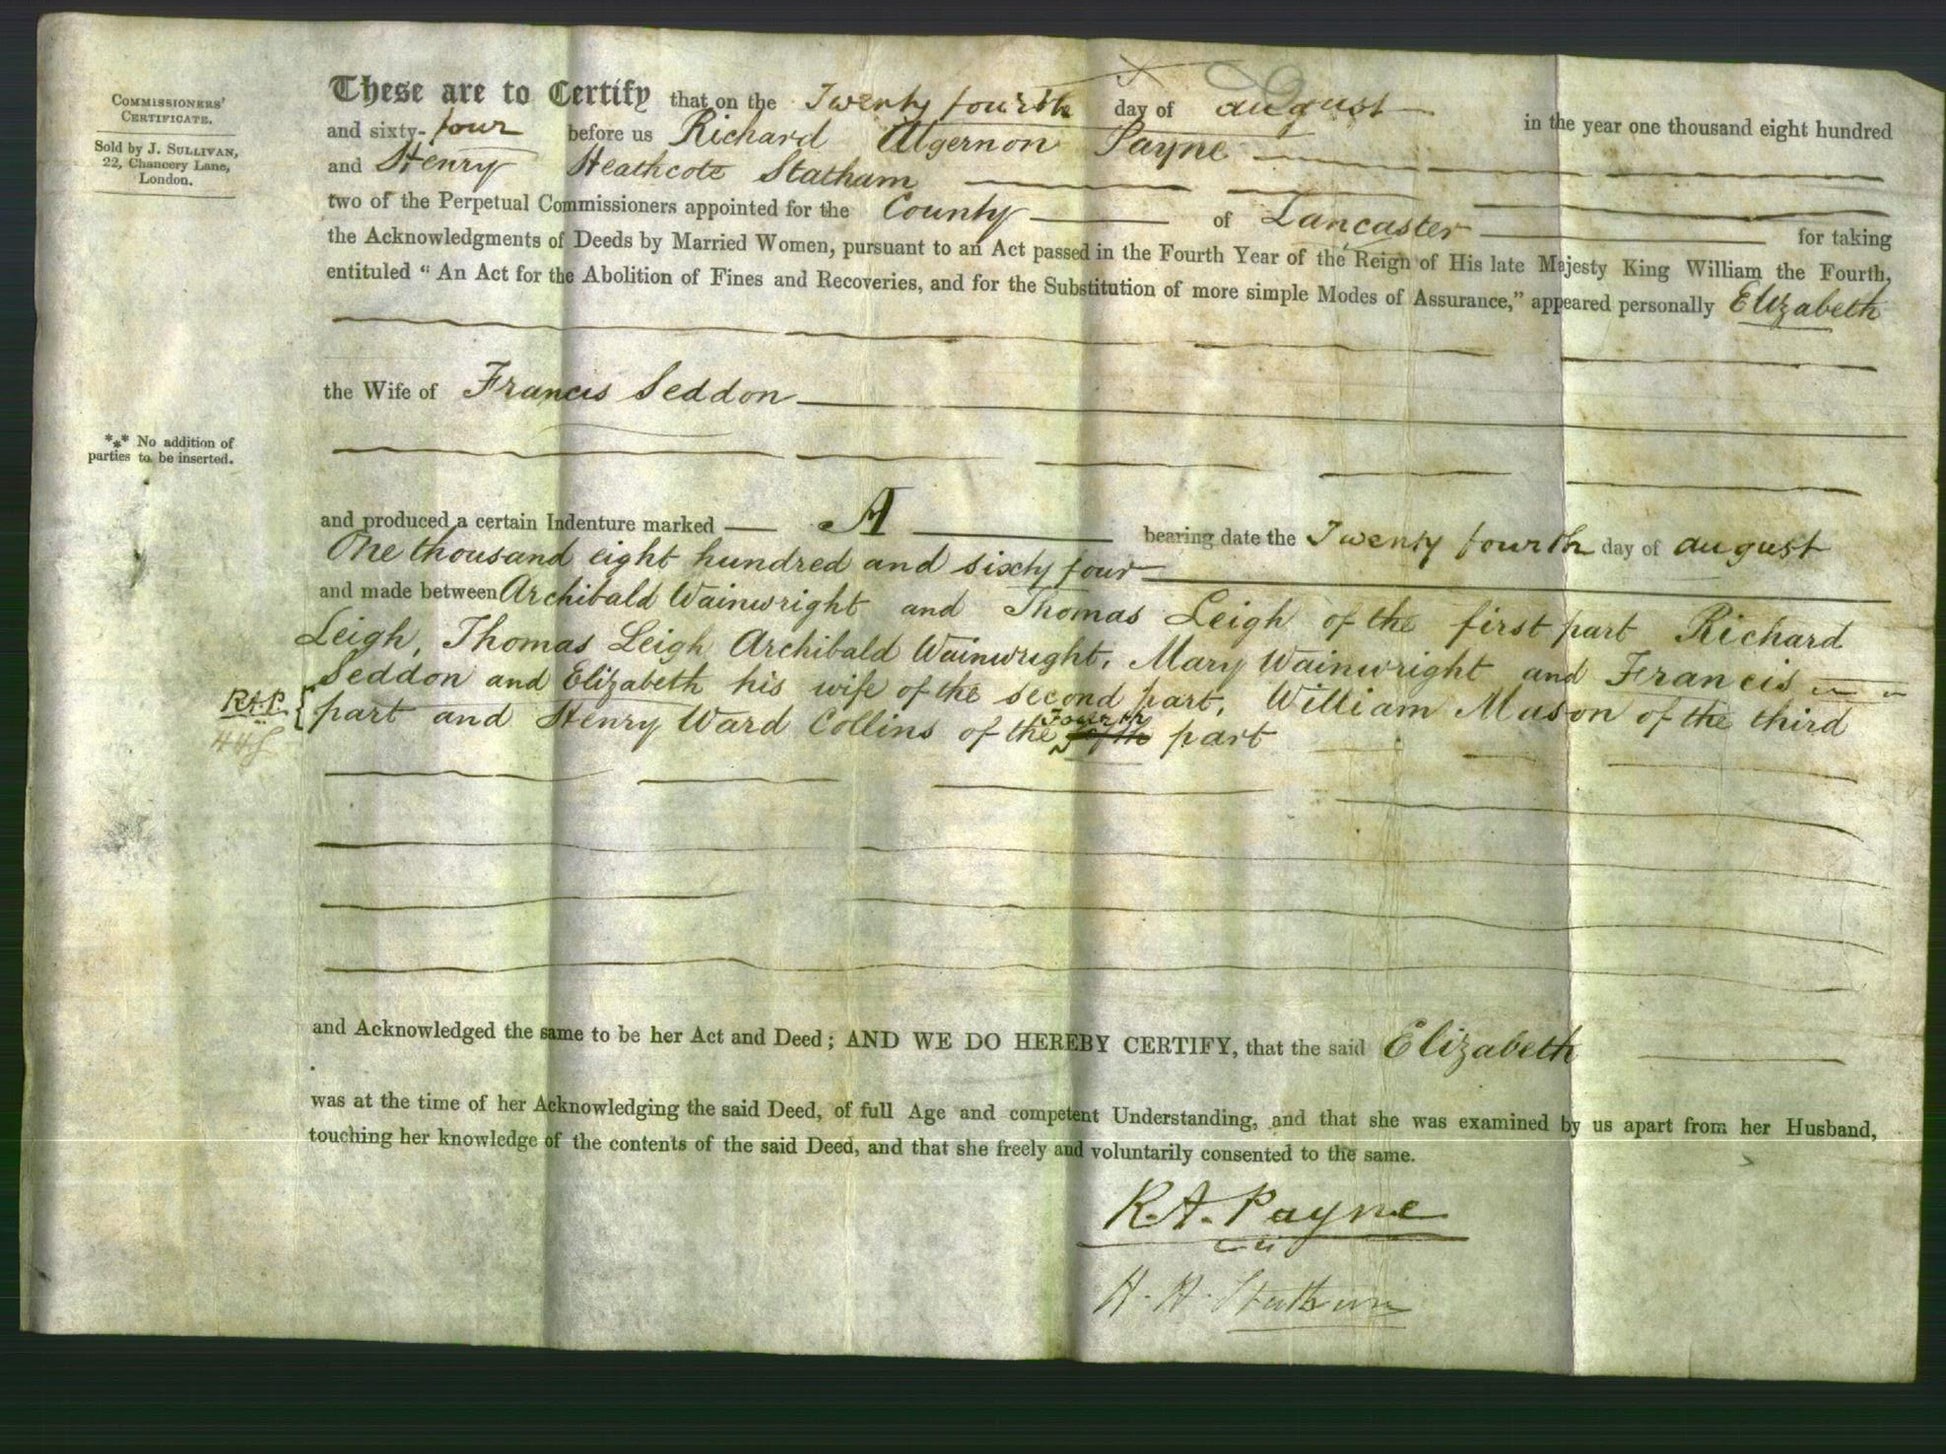 COMMISSIONERS'
CERTIFICATE.
Sold by J. SULLIVAN,
22, Chancery Lane,
London.
These are to Certify that on the Twenty fourth day of august in the year one thousand eight hundred
and sixty- four before us Richard Algernon Payne
and Henry Heathcote Statham
two of the Perpetual Commissioners appointed for the County of Lancaster for taking
the Acknowledgments of Deeds by Married Women, pursuant to an Act passed in the Fourth Year of the Reign of His late Majesty King William the Fourth,
entituled "An Act for the Abolition of Fines and Recoveries, and for the Substitution of more simple Modes of Assurance," appeared personally Elizabeth
the Wife of Francis Seddon
*** No addition of
parties to be inserted.
and produced a certain Indenture marked A bearing date the Twenty fourth day of august
One thousand eight hundred and sixty four
and made between Archibald Wainwright and Thomas Leigh of the first part Richard
Leigh, Thomas Leigh Archibald Wainwright, Mary Wainwright and Francis
Seddon and Elizabeth his wife of the second part, William Mason of the third
R.A.P. { part and Henry Ward Collins of the Fourth part
HHS
and Acknowledged the same to be her Act and Deed; AND WE DO HEREBY CERTIFY, that the said Elizabeth
was at the time of her Acknowledging the said Deed, of full Age and competent Understanding, and that she was examined by us apart from her Husband,
touching her knowledge of the contents of the said Deed, and that she freely and voluntarily consented to the same.
R.A. Payne
H. H. Statham